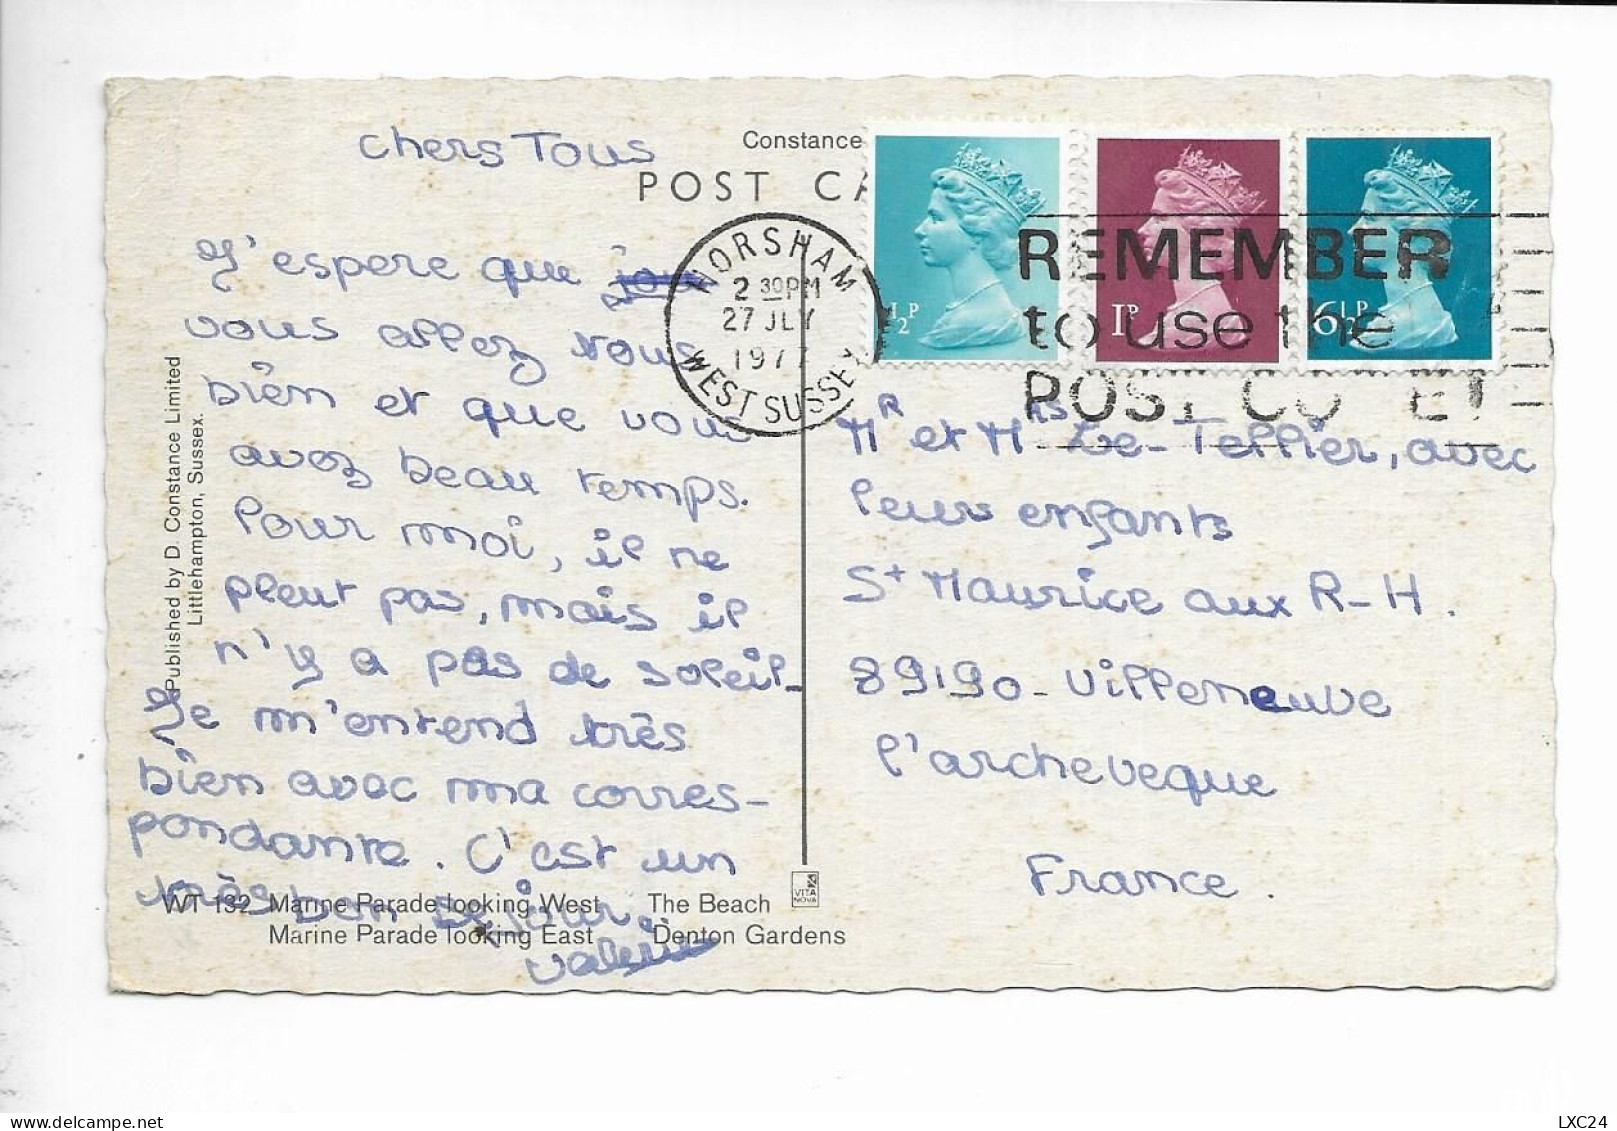 Chers Tous
J'espere que jou
vous allez tous
bien et que vous
avez beau temps.
Pour moi, il ne
pleut pas, mais il
n'y a pas de soleil-
Je m'entend très
bien avec ma corres-
pondante. C'est un
très bon sejour.
Valérie
Constance
POST CA
HORSHAM
2 30PM
27 JLY
1977
WEST SUSSEX
½P
1P
6½P
REMEMBER
to use the
POST CO E
Mr et Mrs Le-Tellier, avec
leurs enfants
St Maurice aux R-H.
89190- Villeneuve
l'archeveque
France.
Published by D. Constance Limited
Littlehampton, Sussex.
WT 132 Marine Parade looking West The Beach
Marine Parade looking East Denton Gardens
VITA
NOVA
LXC24